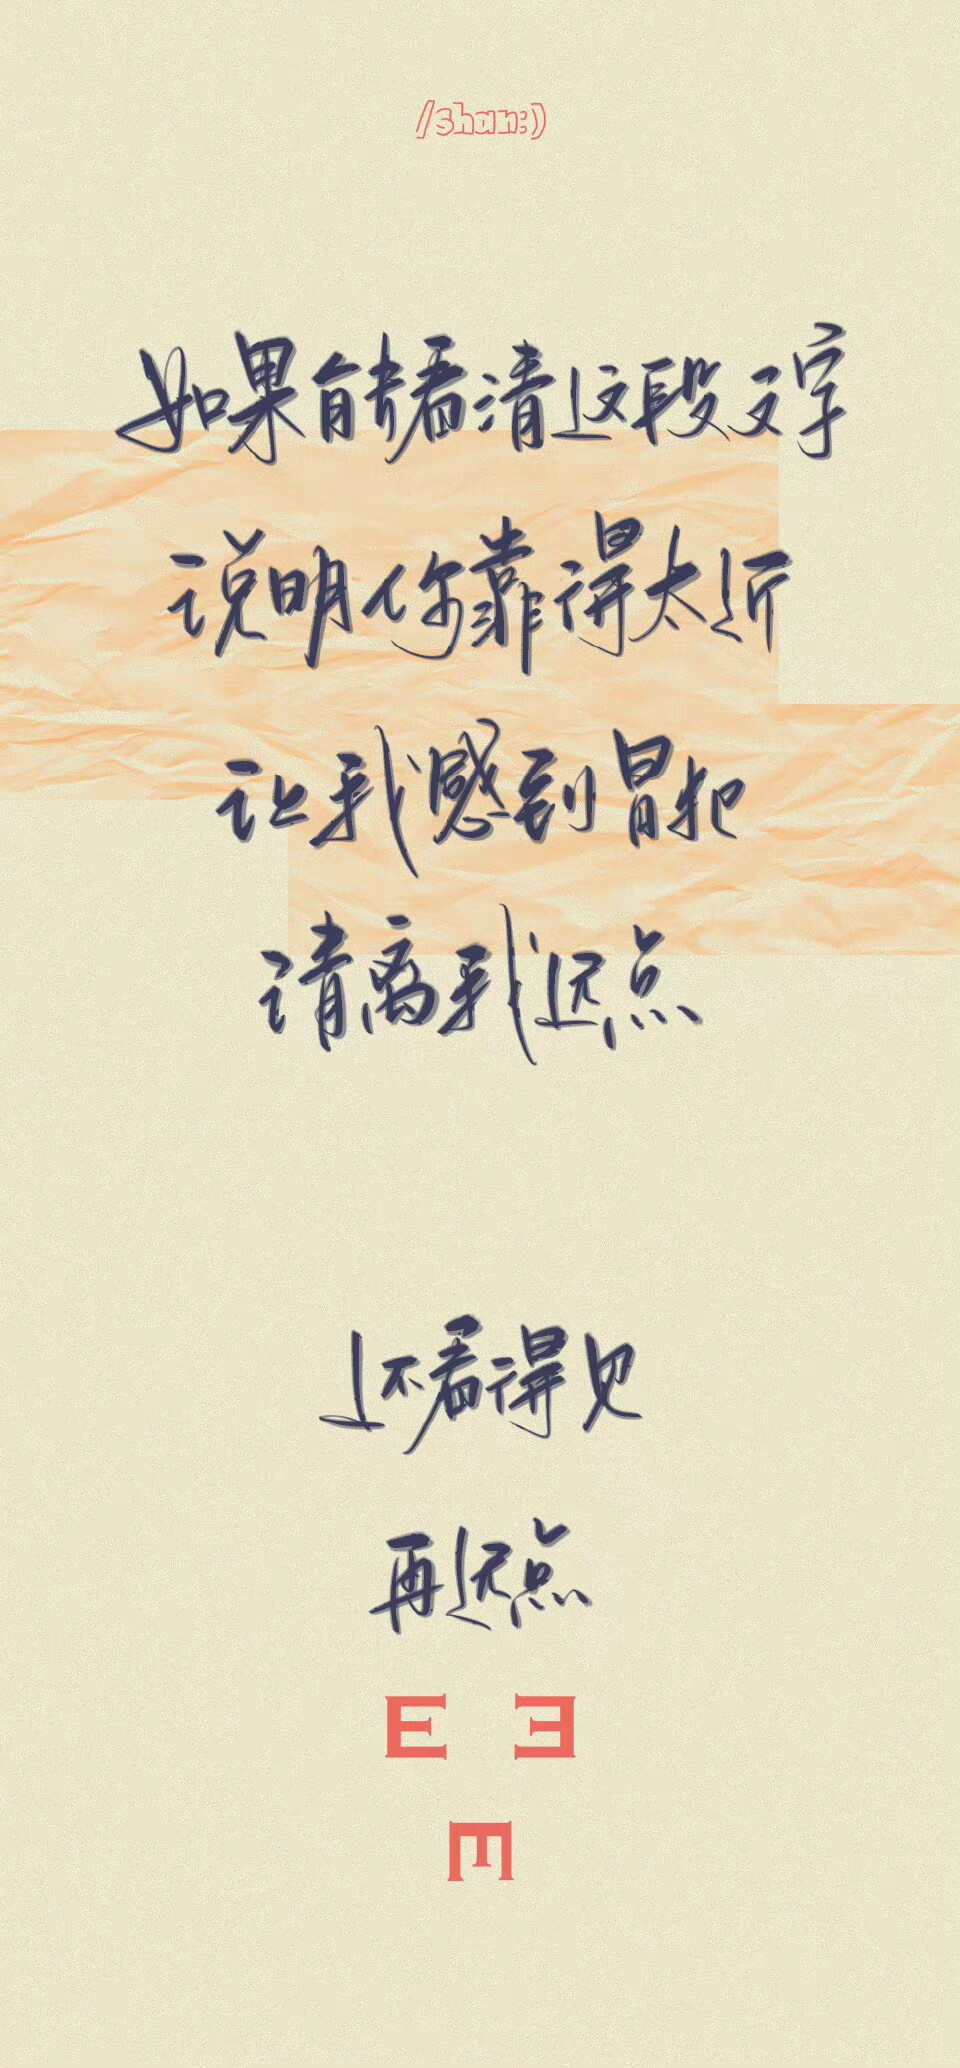 /shan:)
如果能看清这段文字
说明你靠得太近
让我感到冒犯
请离我远点
还看得见
再远点
E E
E